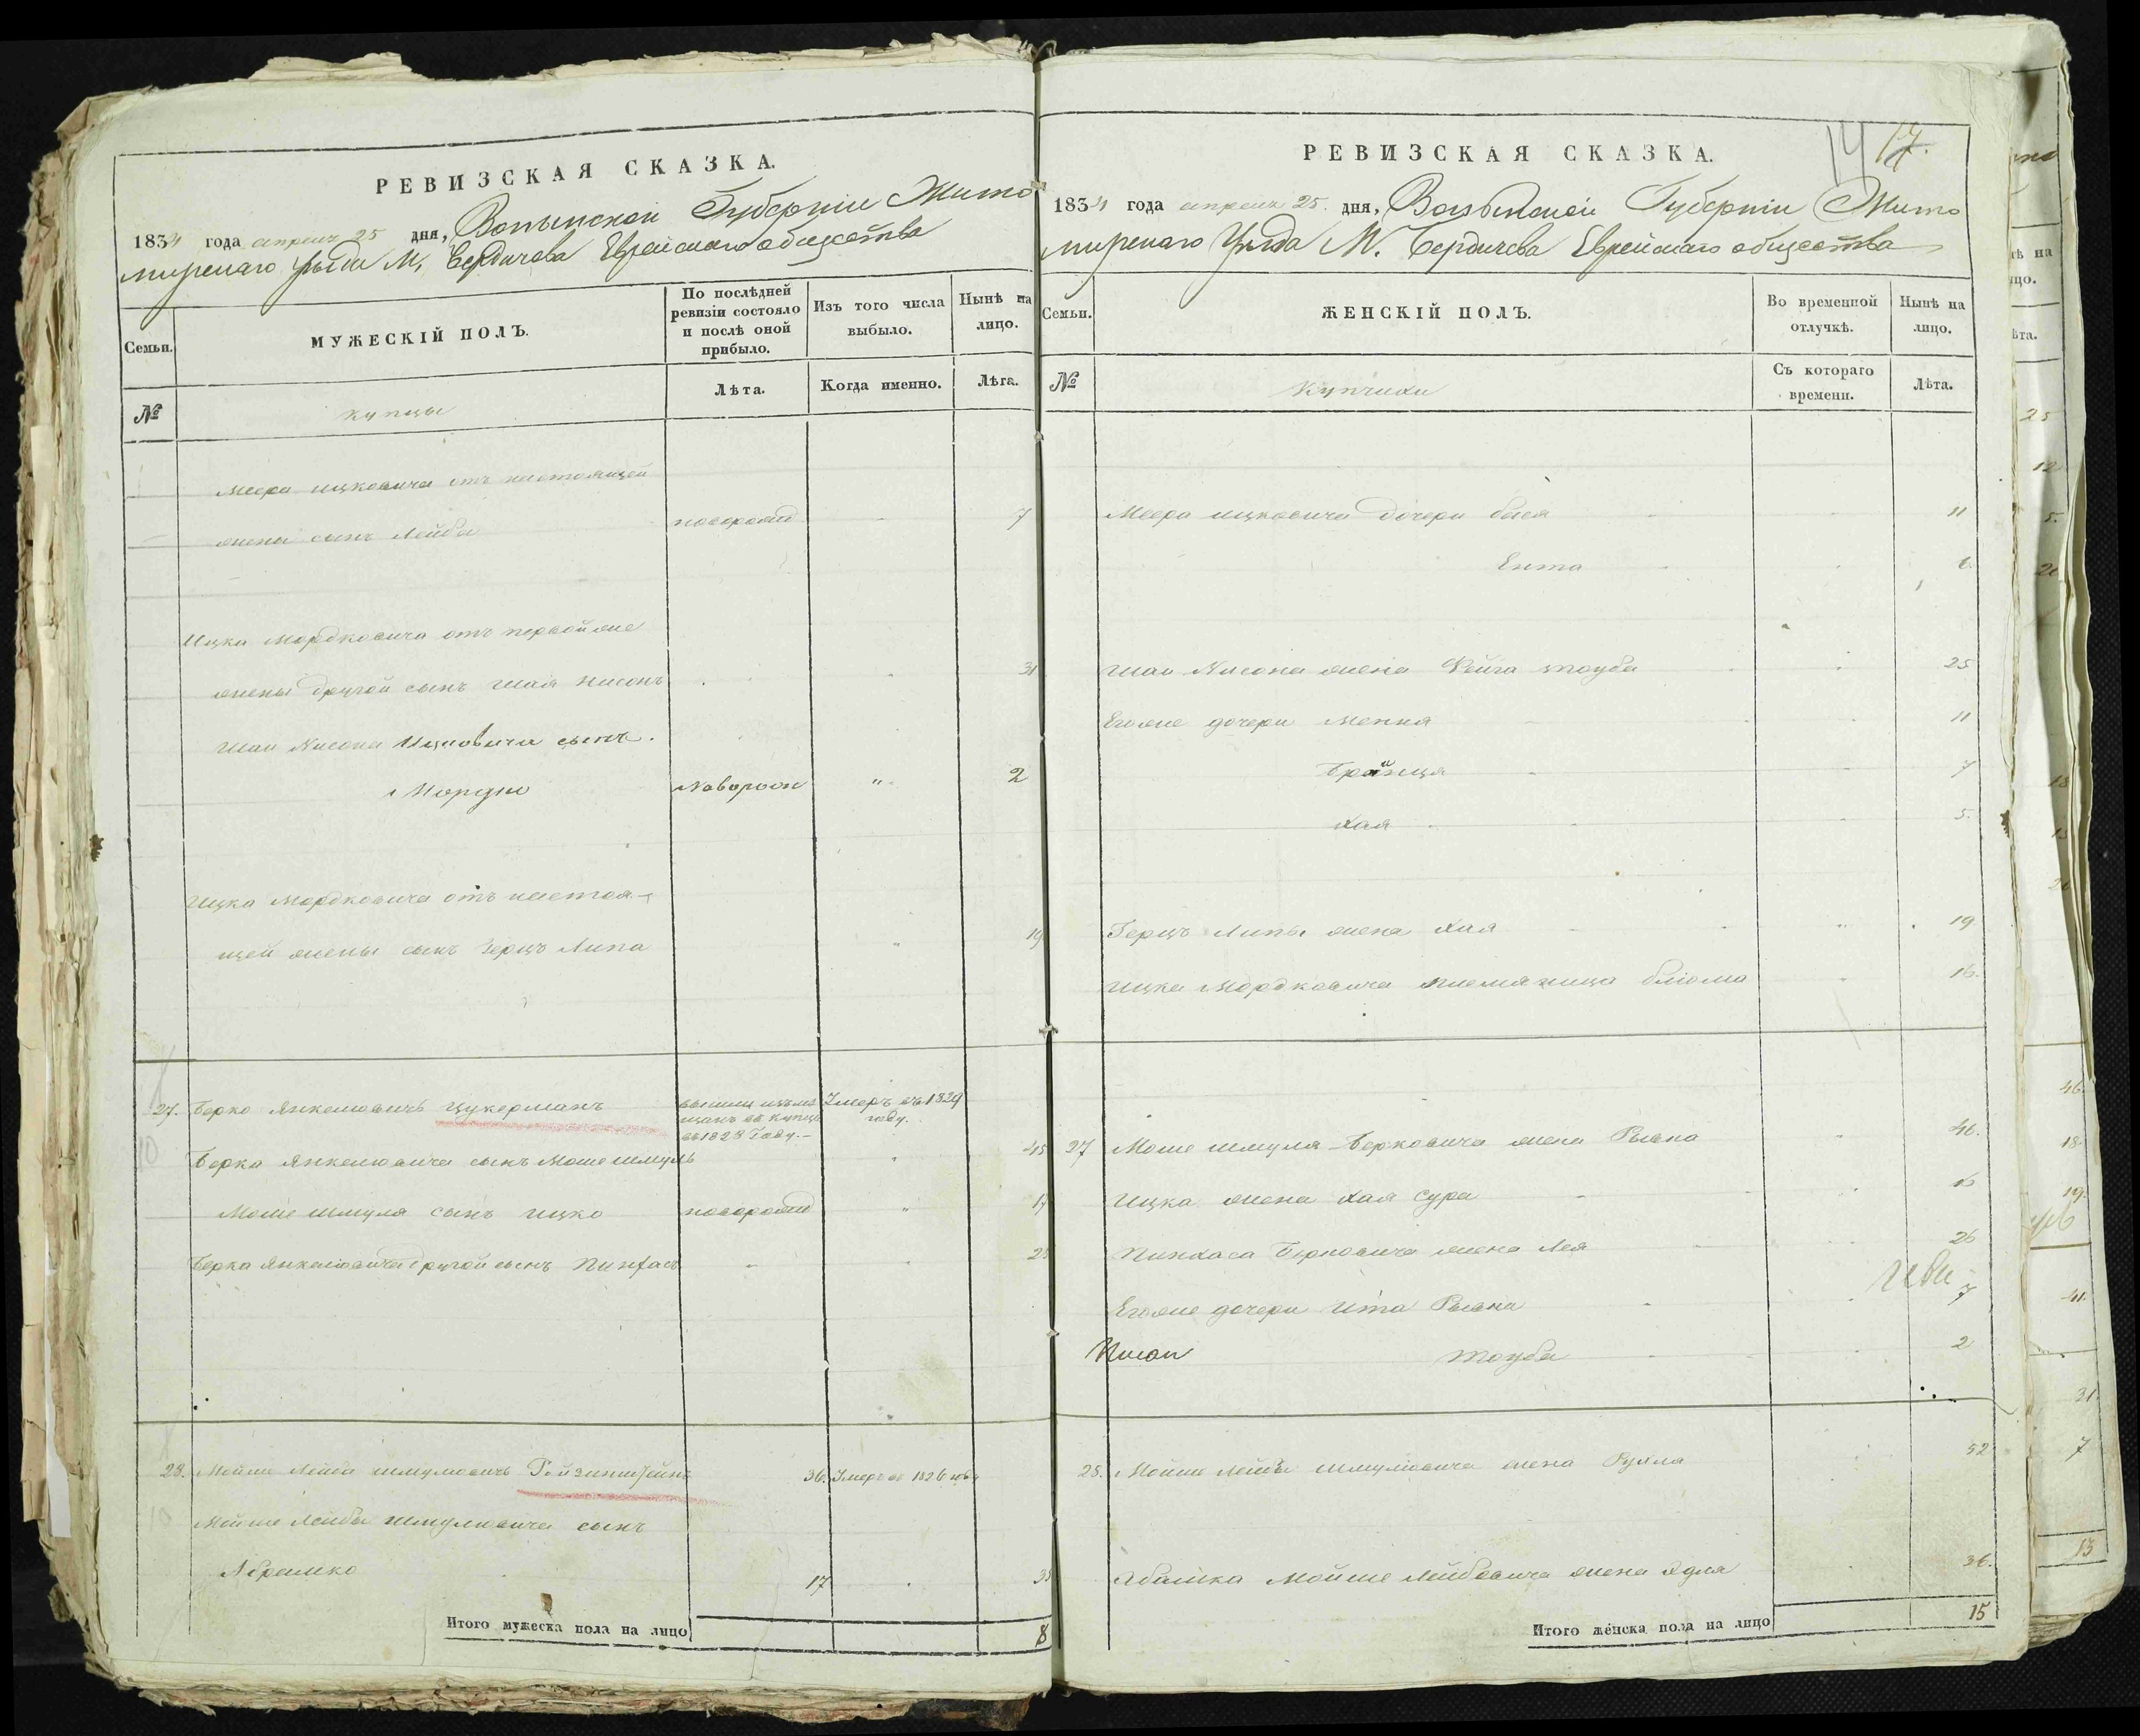 РЕВИЗСКАЯ СКАЗКА.
1834 года апреля 25 дня, Волынской Губерніи Жито
мирскаго Уезда М. Бердичева Еврейскаго общества
Семьи.
МУЖЕСКІЙ ПОЛЪ.
По послѣдней
ревизіи состояло
и послѣ оной
прибыло.
Изъ того числа
выбыло.
Нынѣ на
лицо.
№
Купцы
Лѣта.
Когда именно.
Лѣта.
Меера ицковича отъ настоящей
жены сынъ Лейба новорожд 7
Ицки Мордковича отъ первой же
жены другой сынъ Шая Нисонъ 31
Шаи Нисона Ицковича сынъ
Мордко Новорож " 2
Ицка Мордковича отъ настоя-
щей жены сынъ Герцъ Липа " 19
27. Берко Янкелювичъ Цукерманъ
въ 1828 Году.
Умеръ въ 1829
году.
Берка Янкелювича сынъ Моше шмуль 45
Моше шмуля сынъ ицко новорожд "
Берка Янкелювича другой сынъ Пинхасъ
28. Мойше Лейба шмулювичъ Ройзинштейнъ 36. Умеръ в 1826 году
Мойше Лейбы шмулювича сынъ
Абрамко 17
Итого мужеска пола на лицо 8
РЕВИЗСКАЯ СКАЗКА.
14 17.
1834 года апреля 25. дня, Волынской Губерніи Жито
мирскаго Уезда М. Бердичева Еврейскаго общества
Семьи.
ЖЕНСКІЙ ПОЛЪ.
Во временной
отлучкѣ.
Нынѣ на
лицо.
№
Купчихи
Съ котораго
времени.
Лѣта.
Меера ицковича дочери Бася 11
Ента 6
Шаи Нисона жена Фейга тауба 25
Его же дочери Мения 11
Брайнця 7
Хая 5.
Герцъ Липы жена Хая 19.
Ицка Мордковича племяница блюма 16.
27 Моше шмуля Берковича жена Рывка 46.
Ицка жена хая сура
Пинхаса Берковича жена Лея 26
Его же дочери Ита Рывка 7
тауба 2
28. Мойше лейбы шмулювича жена Рухля 52
Абрамка Мойше Лейбовича жена Эдля 36.
Итого женска пола на лицо 15